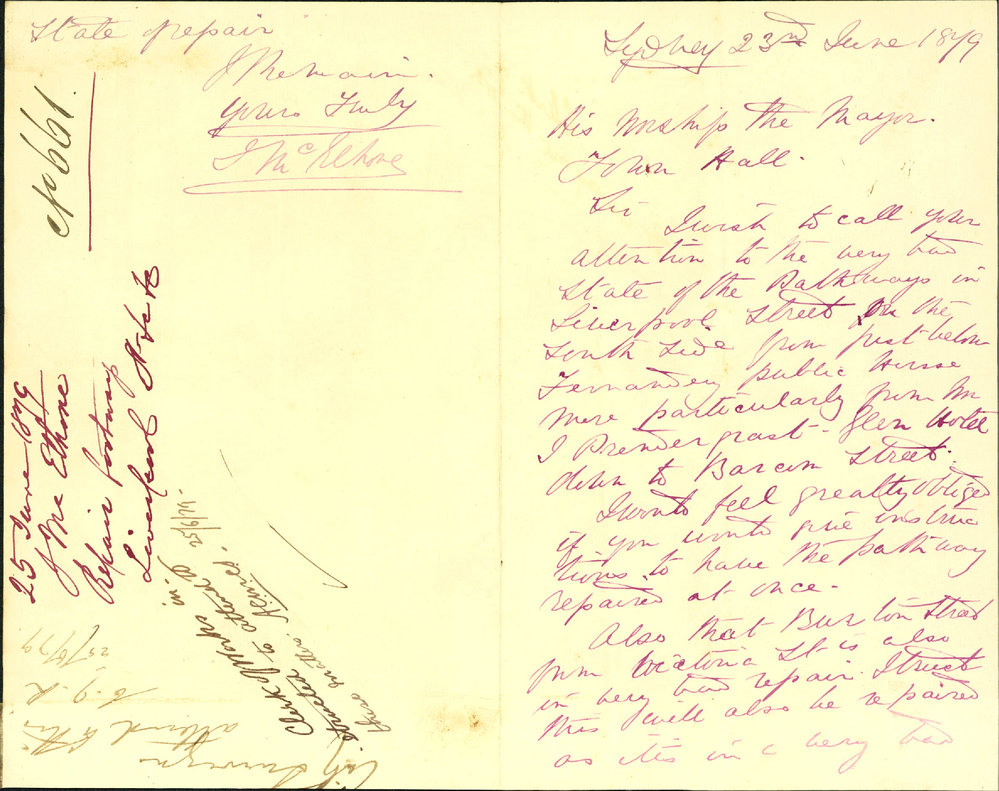 Sydney 23rd June 1879
His Worship the Mayor.
Town Hall.
Sir
I wish to call your
attention to the very bad
State of the Pathways in
Liverpool Street on the
South Side from just below
Fernandez public House
more particularly from Mr
I Prendergast - Glen Hotel
down to Barcom Street.
I would feel greatly obliged
if you would give instruc
tions to have the pathway
repaired at once.
Also that Burton Street
from Victoria St is also
in very bad repair. Street
this will also be repaired
as its in a very bad
State of repair
I Remain.
Yours Truly
J McElhone
No 661.
25 June 1879
J McElhone
Repair footway
Liverpool Street
Clerk of Works in
structed to attend to
this matter. 25/6/79.
City Surveyor
attend to this
25/6/79